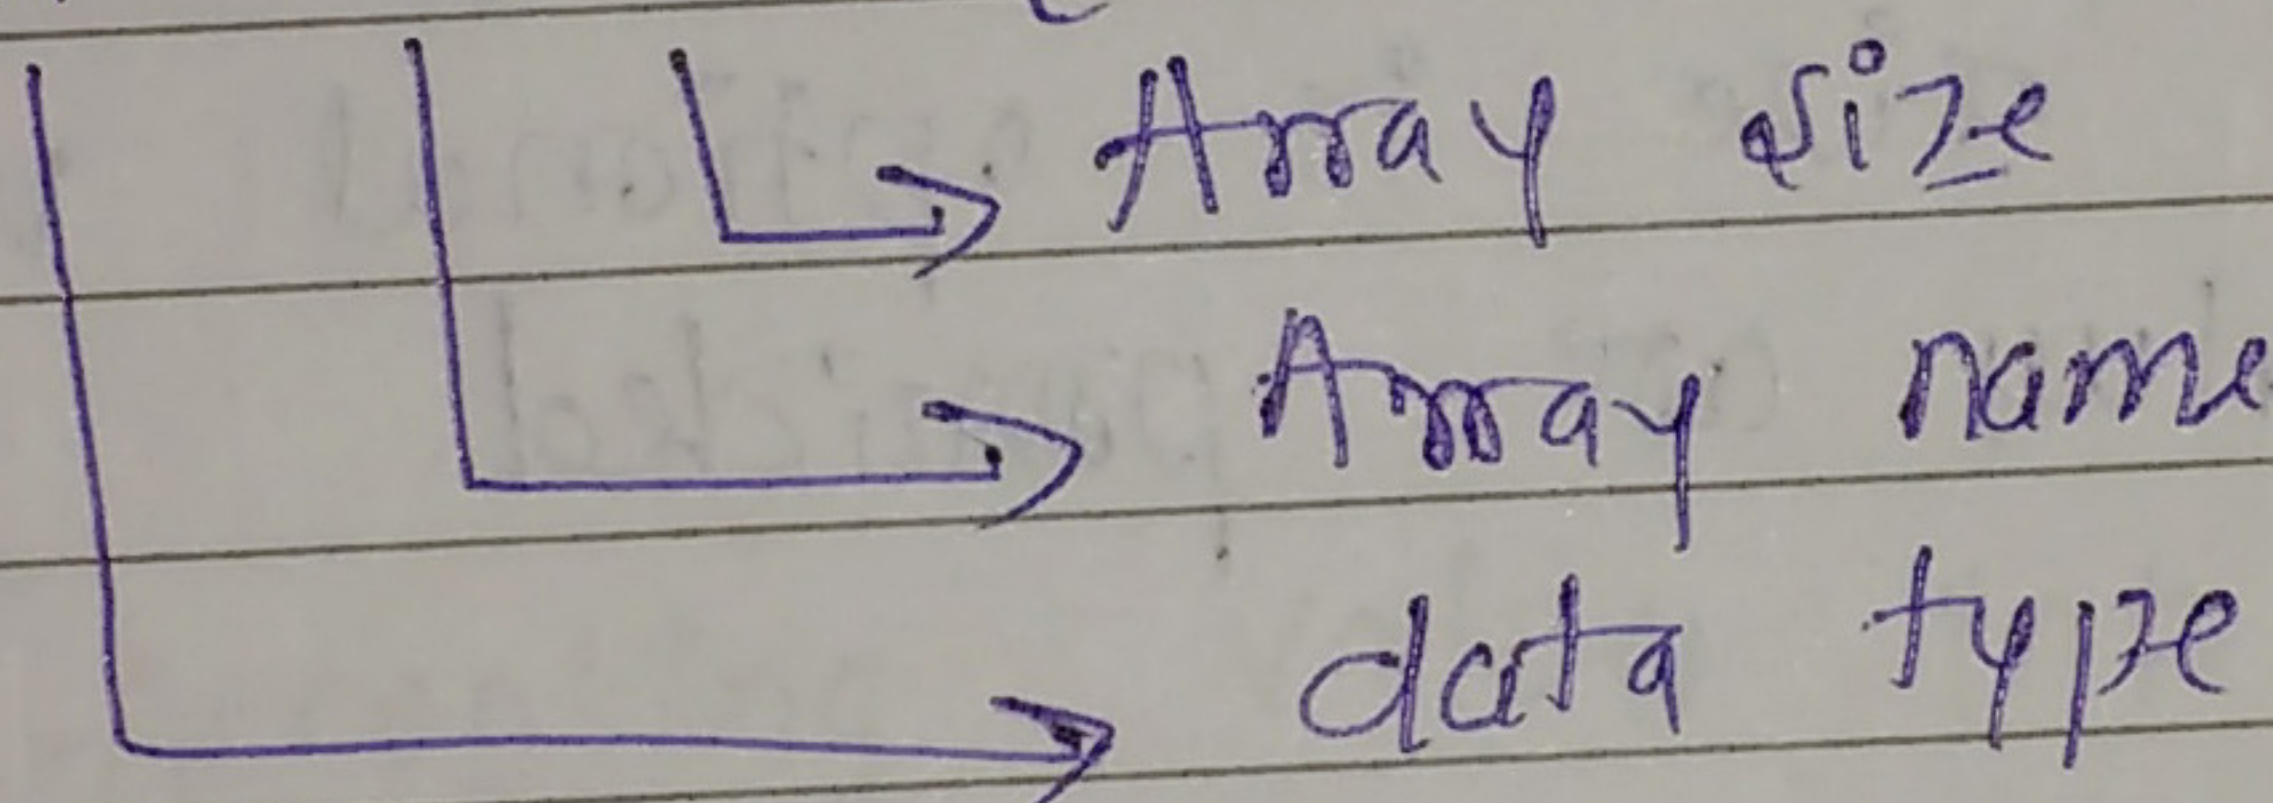 Array size
Array name
data type